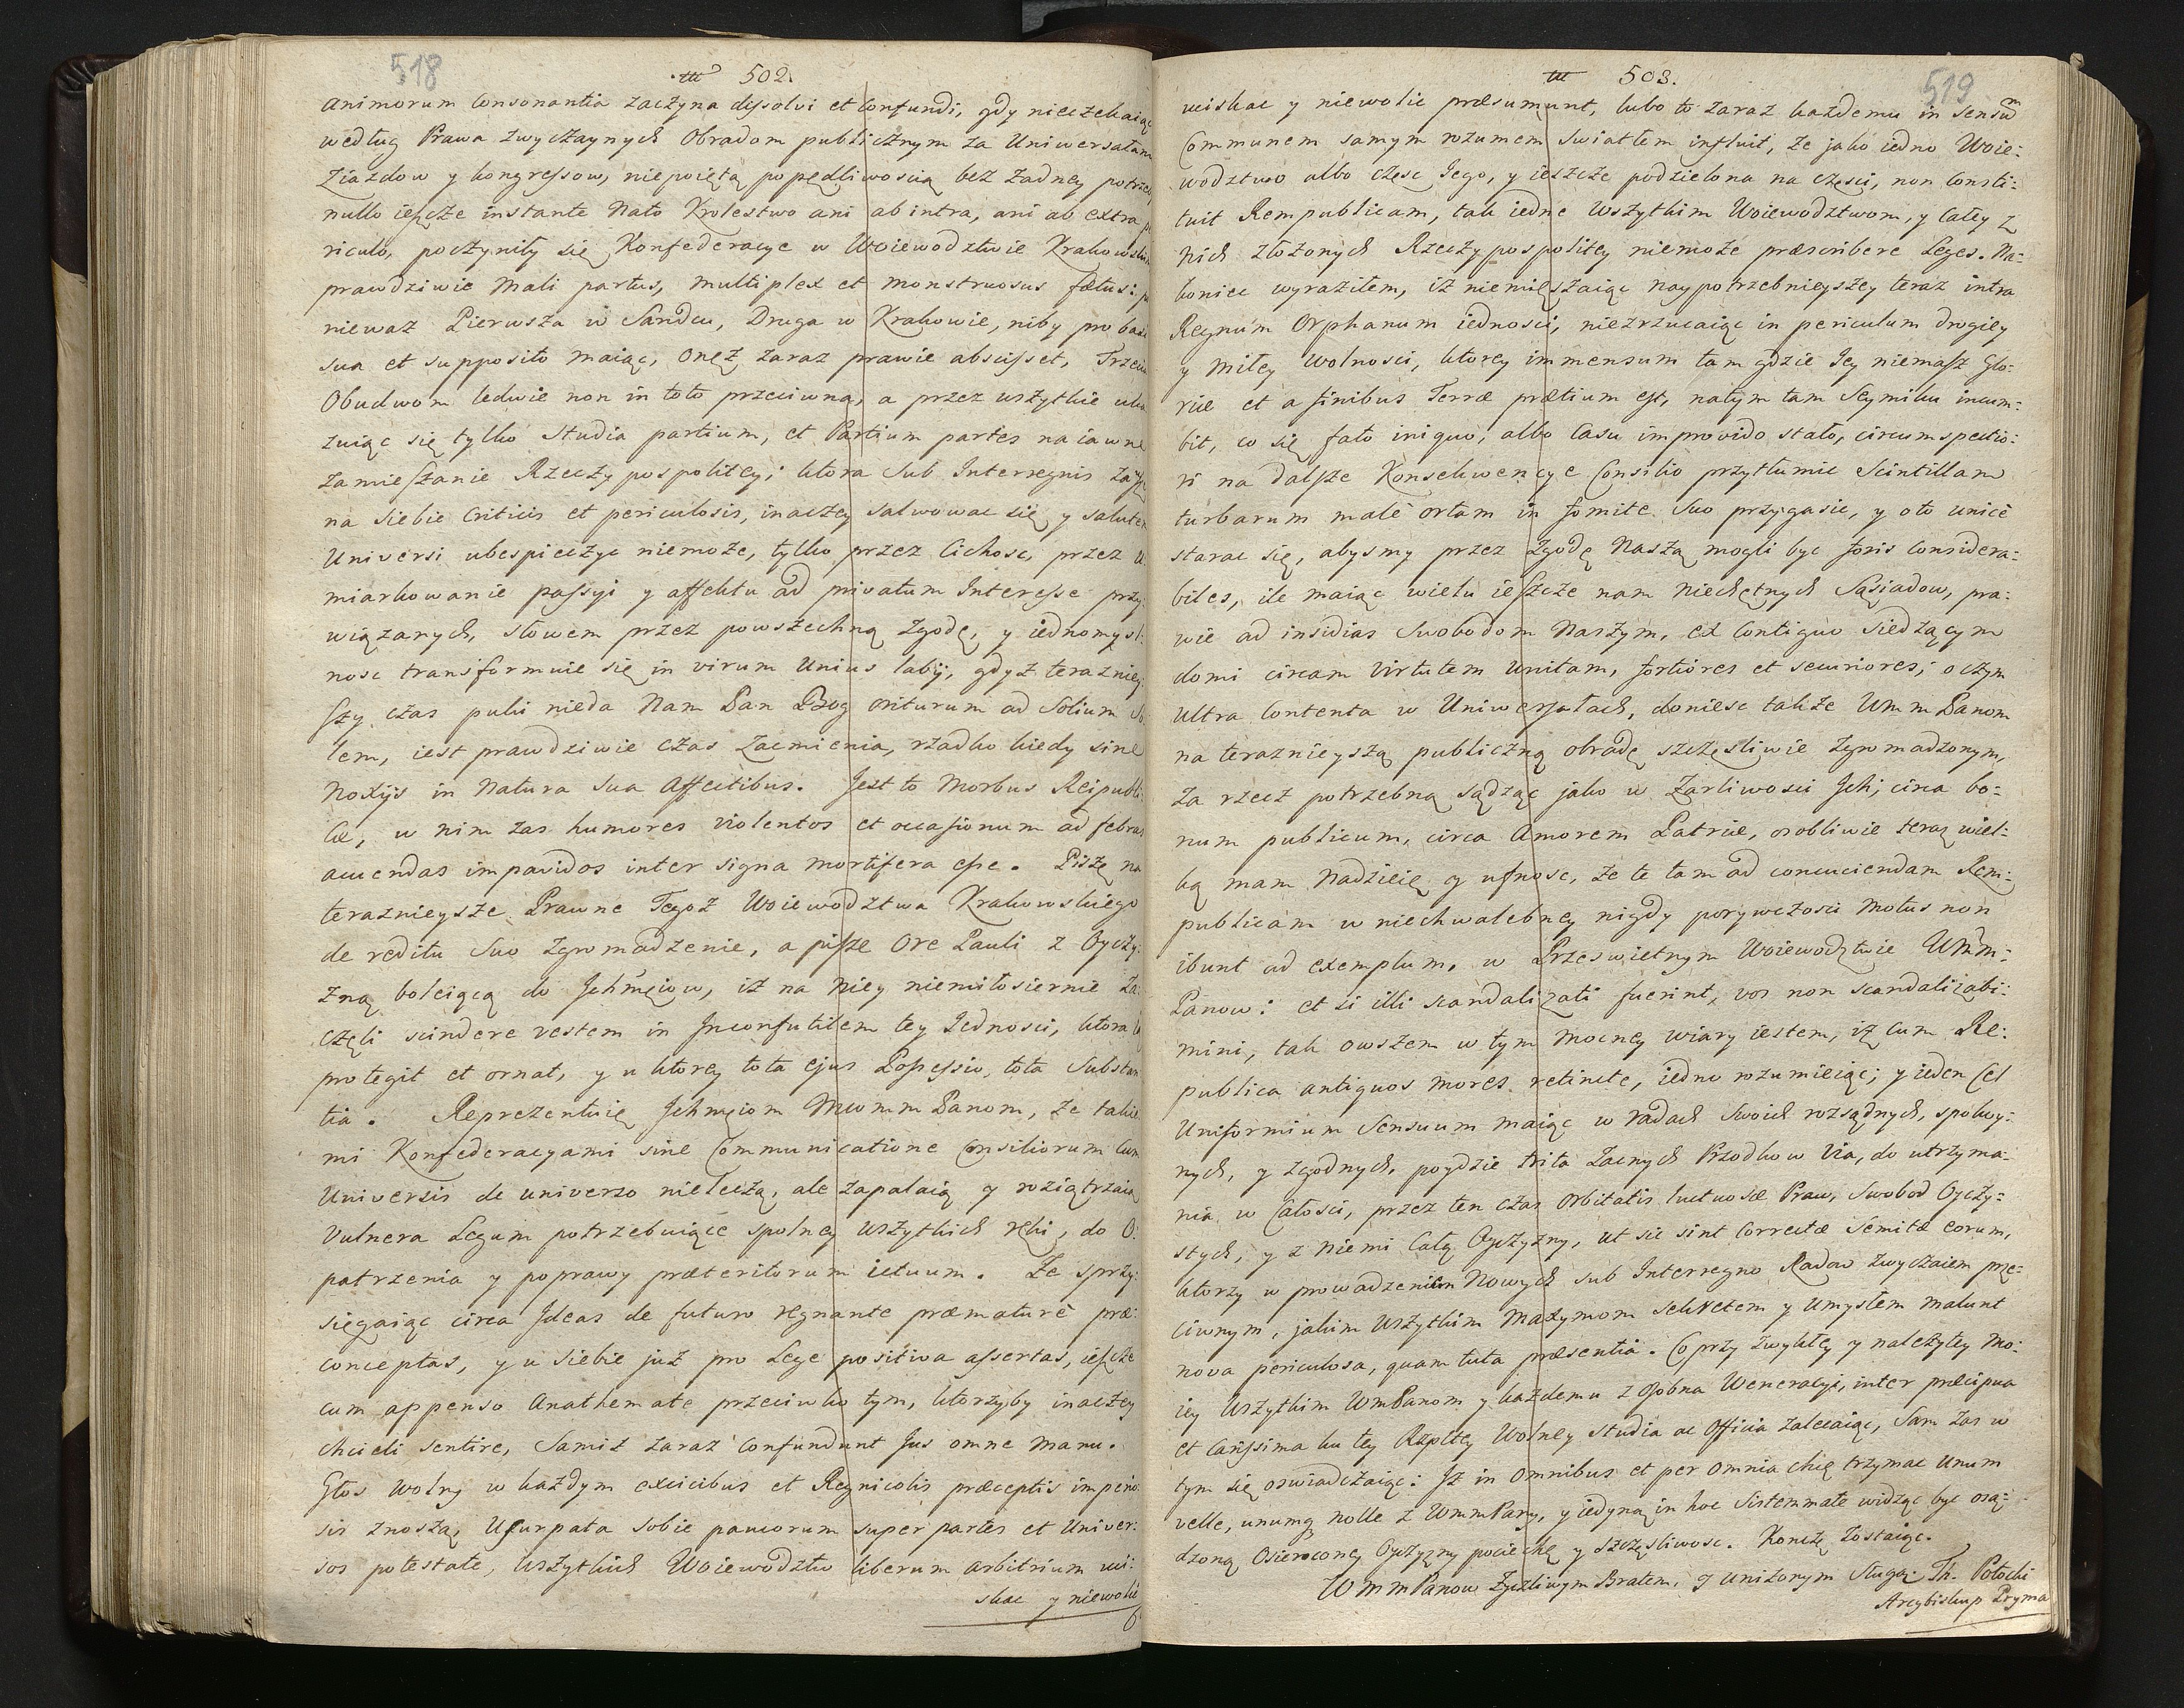 518
502.
animorum consonantia zaczyna dissolvi et confundi, gdy nieczekaiąc
według Prawa zwyczaynych Obradom publicznym za Uniwersałami
Ziazdow y kongressow, niepoiętą popędliwoscią bez zadney potrzeby
nullo ieszcze instante nato Krolestwo ani ab intra, ani ab extra pe
riculo, poczyniły się Konfederacye w Woiewodztwie Krakowskim
prawdziwie mali partus, multiplex et monstruosus fœtus: po
niewaz Pierwsza w Sandcu, Druga w Krakowie, niby pro basi
sua et supposito maiąc, onęż zaraz prawie abscisset, Trzecia
Obudwom ledwie non in toto przeciwna, a przez wszytkie uka
zuiąc się tylko studia partium, et Partium partes na iawne
zamieszanie Rzeczypospolitey; ktora sub Interregnis
na siebie criticis et periculosis, inaczey salwowac się y salutem
Universi ubespieczyc niemoze, tylko przez Cichosc, przez u:
miarkowanie passyi y affektu ad privatum Interesse przy:
wiązanych, słowem przez powszechną zgodę, y iednomysl:
nosc transformuie się in virum Unius labij, gdyz terazniey:
szy czas puki nieda Nam Pan Bog oriturum ad Solium So:
lem, iest prawdziwie czas zacmienia, rzadko kiedy sine
Noxijs in Natura sua affectibus. Jest to Morbus Reipubli:
cæ, w nim zas humores violentos et occasionum ad febras
accendas impavidos inter signa mortifera esse. Piszę na
terazniejsze Prawne Tegoz Woiewodztwa Krakowskiego
de reditu suo zgromadzenie, a piszę ore Pauli z Oyczy:
zną boleiącą do Jchmciow, iż na Niey niemiłosiernie za:
częli scindere vestem in Inconsutilem tey Jednosci, ktora
protegit et ornat, y u ktorey tota ejus Possessio, tota Substan
tia. Reprezentuię Jchmciom Mwmm Panom, ze takie
mi Konfederacyami sine Communicatione Consiliorum cum
Universis de universo nieleczą, ale zapalaią y roziątrzaią
Vulnera Legum potrzebuiące spolney wszytkich ręki, do O:
patrzenia y poprawy præteritorum ictuum. Ze sprzy:
sięgaiąc circa Jdeas de futuro regnante præmaturè præ:
conceptas, y u siebie już pro Lege positiva assertas, ieszcze
cum appenso Anathemate przeciwko tym, ktorzyby inaczey
chcieli sentire, Samiż zaraz confundunt Jus omne manu.
Głos wolny w kazdym exicibus et Regnicolis præceptis imperio:
sis znoszą, Usurpata sobie paucorum super partes et Univer:
sos potestate, wszytkich Woiewodztw liberum arbitrium uci:
skac y niewolic
519
503.
uciskac y niewolic præsumunt, lubo to zaraz kazdemu in sensum
Communem samym rozumem swiatlem influit, ze jako iedno Woie:
wodztwo albo częsc Jego, y ieszcze podzielona na części, non Consti:
tuit Rempublicam, tak iedne wszytkim Woiewodztwom, y całey z
Nich złożonych Rzeczypospolitey niemoże præscribere Leges. Na:
koniec wyraziłem, iż niemieszaiąc naypotrzebnieyszey teraz intra
Regnum Orphanum iedności, niezrzucaiąc in periculum drogiey
y miłey wolnosci, ktorey immensum tam gdzie Jey niemasz Glo:
riæ et a finibus Terræ prætium est, natym tam Seymiku incum:
bit, co się fato iniquo, albo Casu improvido stało, circumspectio:
ri na dalsze Konsekwencye Consilio przytłumic Scintillam
turbarum malè ortam in fomite suo przygasic, y oto unicè
starac się, abysmy przez Zgodę Naszą mogli byc foris considera:
biles, ile maiąc wielu ieszcze nam Niechętnych Sąsiadow, pra:
wie ad insidias Swobodom Naszym, ex Contiguo siedzącym
domi circam Virtutem unitam, fortiores et securiores; oczym
ultra Contenta w Uniwersałach, doniesc takze Wmm Panom
na teraznieyszą publiczną obradę szczęsliwie zgromadzonym,
za rzecz potrzebną sądząc jako w Zarliwosci Jch, circa bo:
num publicum, circa Amorem Patriæ, osobliwie teraz wiel:
ką mam Nadzieię y ufnosc, że te tam ad concuciendam Rem:
publicam w niechwalebney nigdy porywczosci Motus non
ibunt ad exemplum, w Przeswietnym Woiewodztwie Wmm:
Panow: et si illi scandalizati fuerint, vos non scandalizabi:
mini, tak owszem w tym mocney wiary iestem, iż cum Re:
publica antiquos mores retinete, iedno rozumieiąc; y ieden Cel
Uniformium Sensuum maiąc w radach swoich rozsądnych, spokoy:
nych, y zgodnych, poydzie trita Zacnych Przodkow via, do utrzyma:
nia w całosci, przez ten czas Orbitatis luctuosæ Praw, Swobod Oyczy:
stych, y z niemi całey Oyczyzny, ut sic sint correctæ Semitæ eorum,
ktorzy wprowadzeniem Nowych sub Interregno Radow zwyczaiem prze:
ciwnym, jakim wszytkim Maxymom sekretem y Umysłem malunt
nova periculosa, quam tuta præsentia. Co przy zwykłey y należytey mo:
iey wszytkim WmPanom y kazdemu z osobna Weneracyi, inter præcipua
et Carissima ku tey Rzpltey Wolney studia ac Officia zalecaiąc, Sam zas w
tym się oswiadczaiąc: Jż in omnibus et per omnia chcę trzymac Unum
velle, unumq nolle z WmmPany, y iedyną in hoc Sistemmate widząc byc osą:
dzoną Osieroconey Oyczyzny pociechę y szczęsliwosc. Konczę zostaiąc.
WmmPanow Zyczliwym Bratem, y unizonym Sługą. Th. Potocki
Arcybiskup Pryma